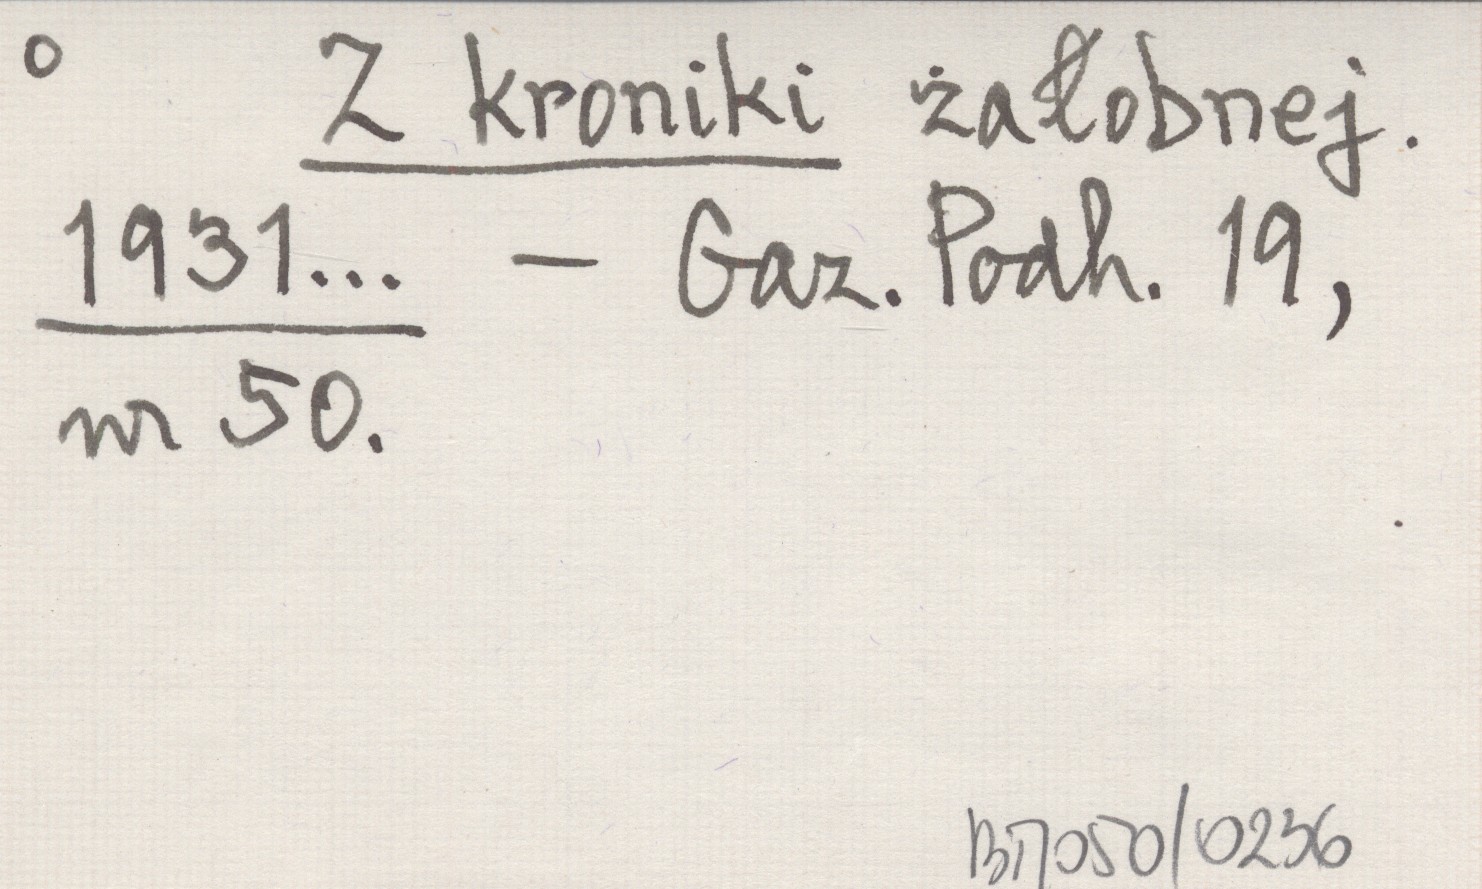 o Z kroniki żałobnej.
1931... – Gaz. Podh. 19,
nr 50.